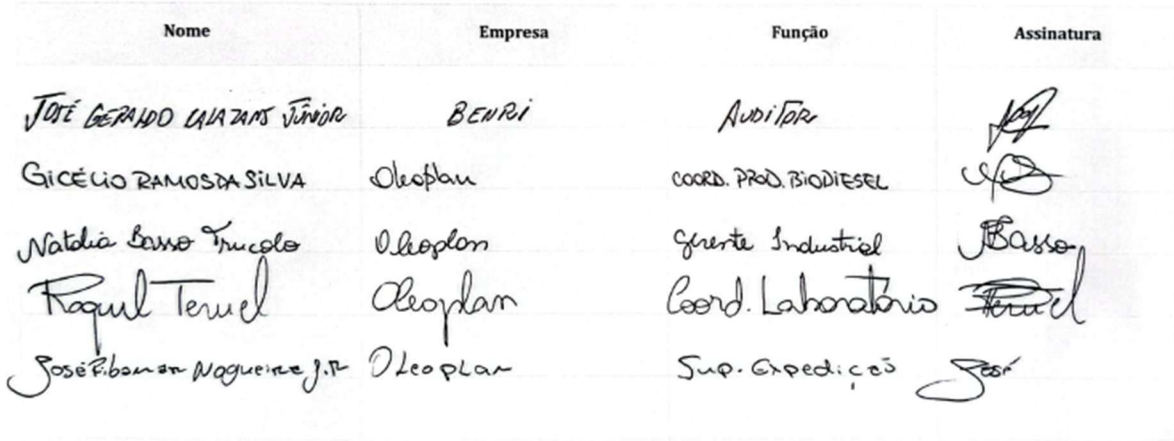 Nome Empresa Função Assinatura
JOSÉ GERALDO CALAZANS JÚNIOR BENRI AUDITOR
GICÉLIO RAMOS DA SILVA Oleoplan COORD. PROD. BIODIESEL
Natalia Basso Trucolo Oleoplan Gerente Industrial Basso
Raquel Teruel Oleoplan Coord. Laboratório Teruel
José Ribamar Nogueira J.R Oleoplan Sup. Expedição José